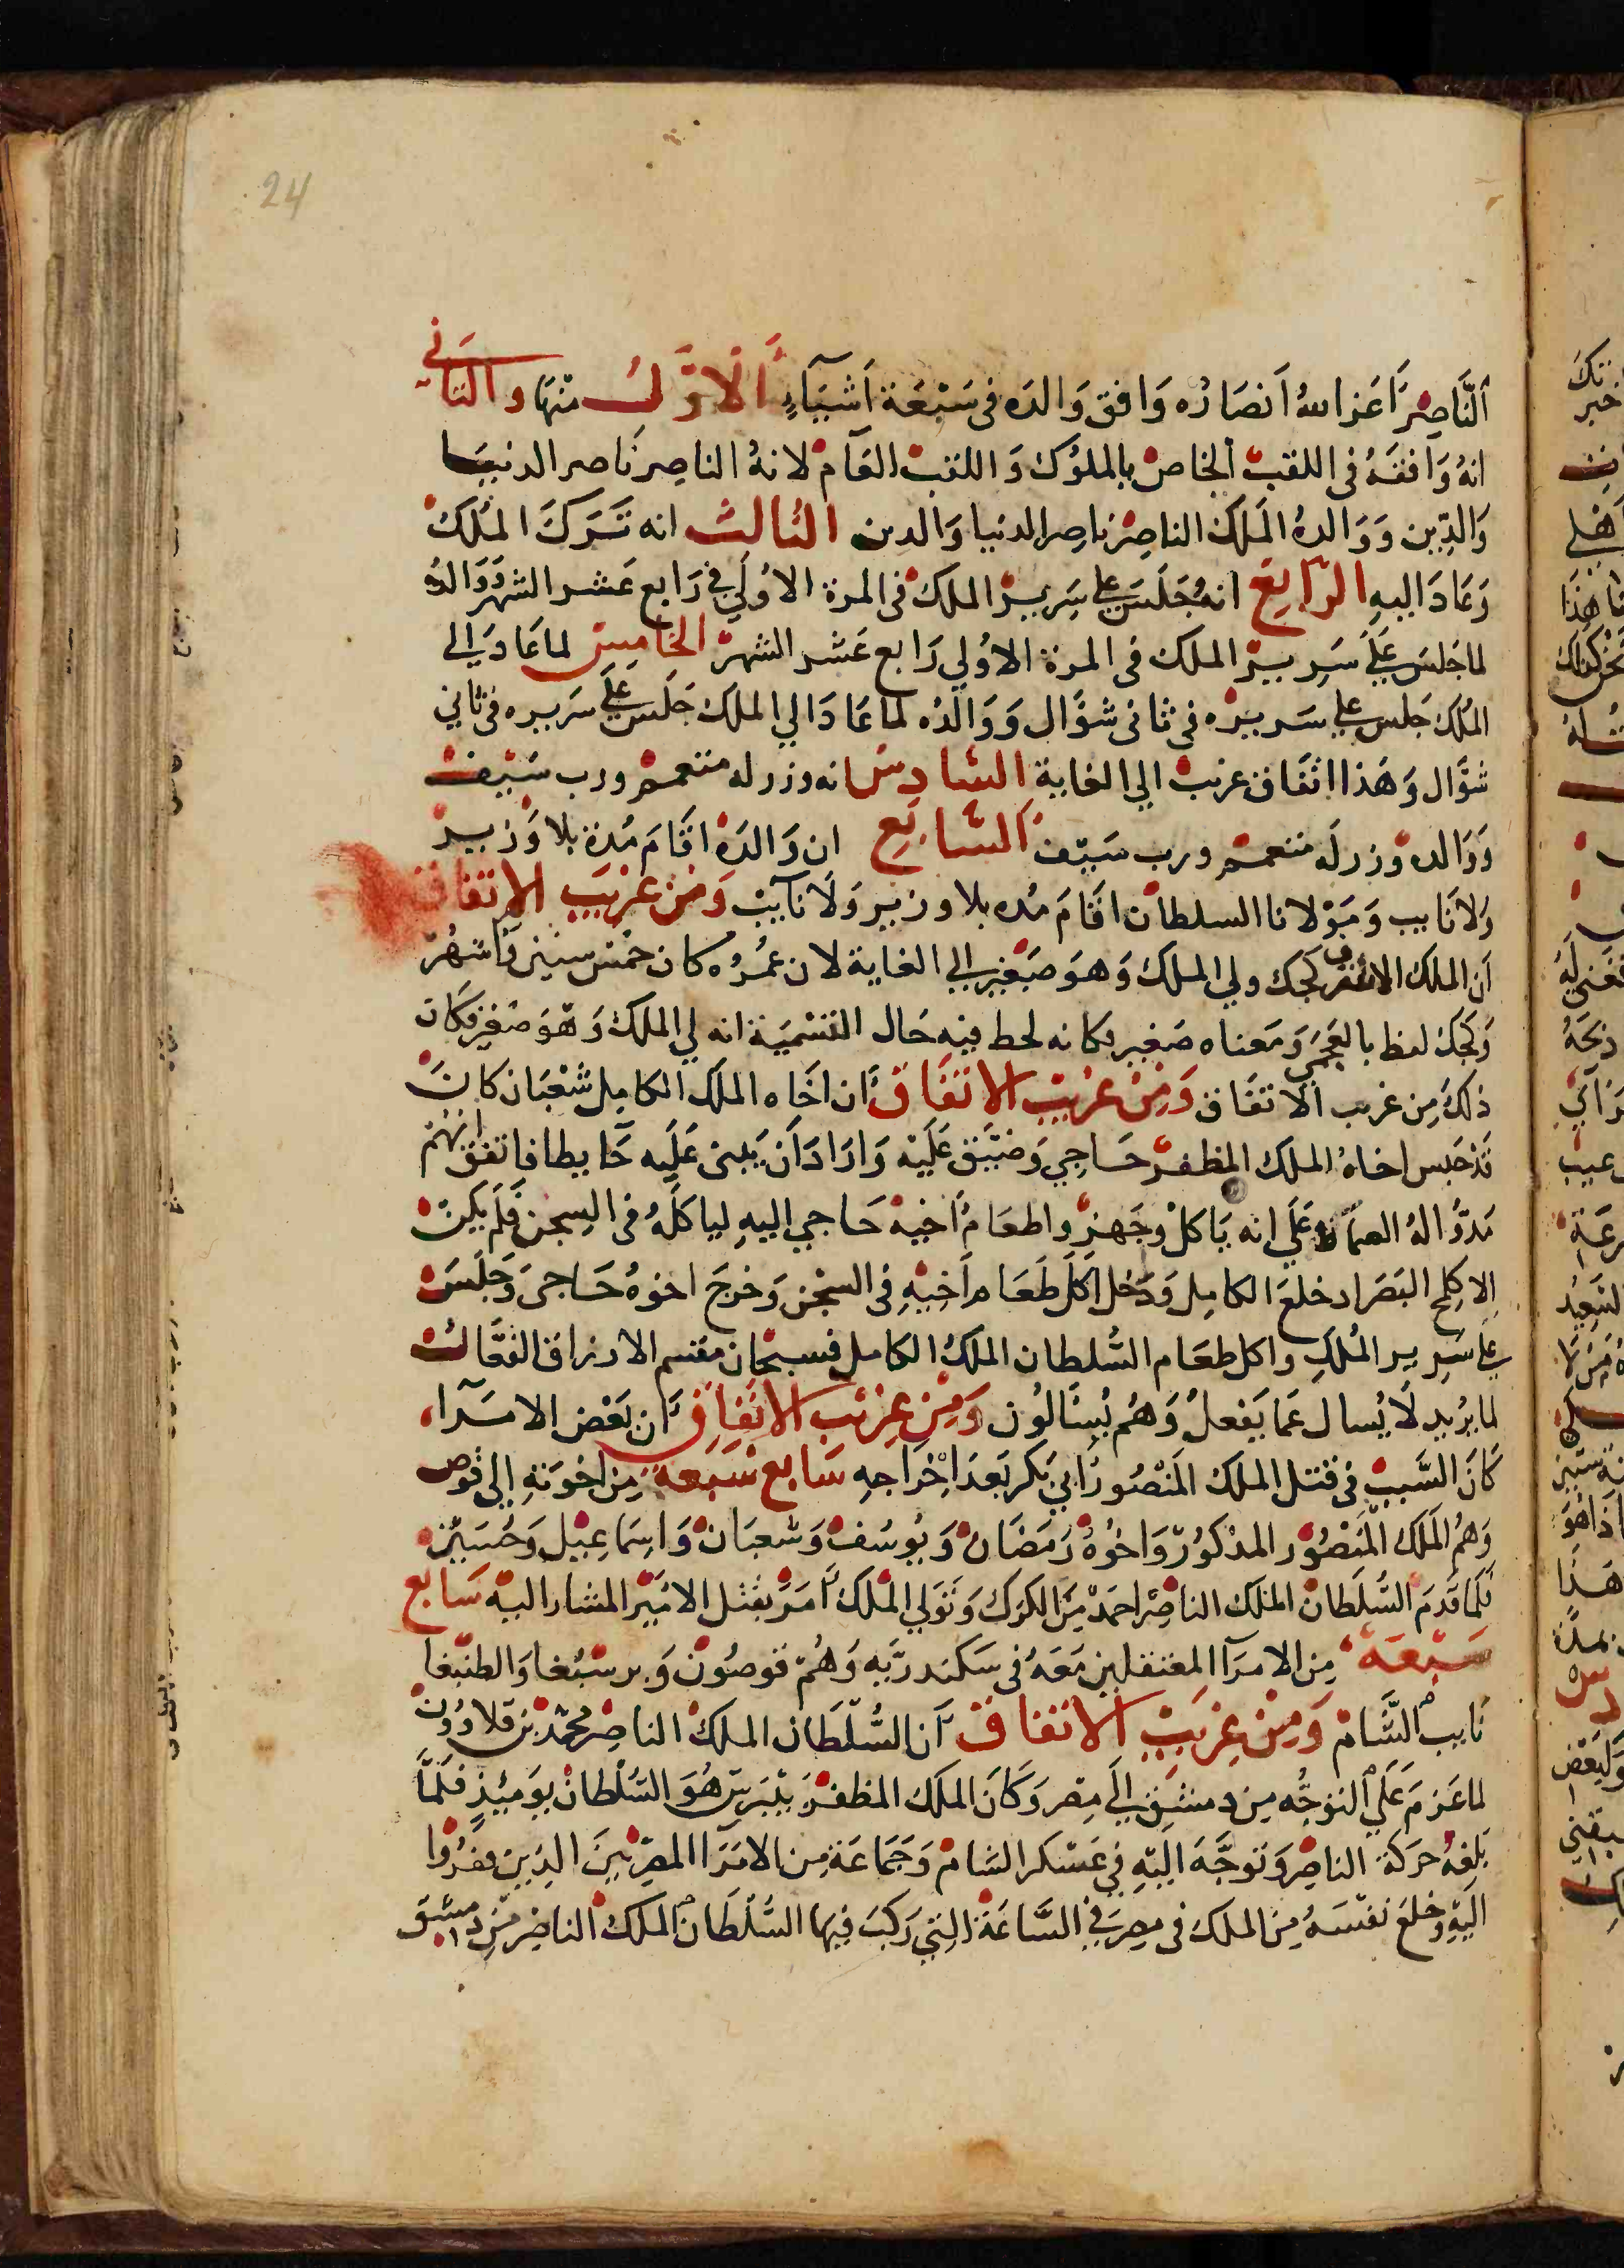 24
اَلنَّاصِرَ اَعَز اللهُ اَنصَارُه وَافق وَالدَه فى سَبْعَة اَشيَآءٍ اَلاوَّل منهَا والثانى
انهُ وَافقَهُ فى اللقب الخاص بالملوُك وَ اللقب العَام لانهُ الناصِر ناصر الدنيَا
وَالدِّين وَوَالدهُ المَلك الناصِرْ ناصِر الدنيا وَالدين الثالث انه تَرَكَ المُلك
وَعَادَ اليهِ الرّابِعِ انهُ جَلَسَ على سَرِير الملك فى المرة الاوُلي في رَابع عَشر الشهر وَوَالدُه
لما جَلسَ عَلَى سَرِيرْ الملك فى المرة الاوُلي رَابع عَشر الشهر الخامِس لما عَادَ الى
المُلك جَلس على سَريره فى ثانى شوَّال وَوَالدُه لما عَادَ الي الملك جَلسَ عَلَى سَريره فى ثاني
شوَّال وَهَذا اتفَاق غريب الي الغاية السَّادس انه وزر له متعمم ورب سَيْف
وَوَالده وزر لَه متعمم ورب سَيْف السَّابعِ ان وَالدَهُ اقَامَ مُدة بلا وَزير
وَلا نَايب وَمَوْلانا السلطان اقَامَ مُده بلا وزير وَلَا نآيبْ وَمنْ غريَب الاتفَاق
اَن الملك الاشرف كجك ولي الملك وَهوَ صَغير الى الغاية لان عمُرُه كان خمْس سنين وَاشهُر
وَكجك لفظ بالعَجَمى وَمَعناه صَغير فكانه لحظ فيه حَال التسْميَة انه يلي الملك وَهوَ صَغير فكان
ذلكَ مِن غريب الاتفَاق وَمِنْ غريْب الاتفَاق اَن اخَاه الملك الكامِل شَعْبَان كانَ
قَدْ حَبس اخاهُ الملك المظفر حَاجي وَضَيَّق عَلَيْه وَارَادَ اَن يَبنى عَلَيه حَايطا فاتفق انهُم
مَدّوُا لهُ السماط عَلَى انه يَاكلْ وجَهزوا طعَام اَخيه حَاجي اليهِ لياكلَهُ فى السِجن فَلَم يَكنْ
الا كلمح البَصَر اد خلعَ الكامِل وَدَخل اكَلَ طَعَام اَخِيْهِ فى السجْن وَخرجَ اخوُه حَاجى وَجَلسَ
عَلَى سَرِير المُلكِ واكل طعَام السُّلطان الملكُ الكامل فسبحَان مقسم الارزاق الفعَّال
لما يُريد لَا يُسال عَما يَفعلُ وَهُم يُسئَالُون وَمِنْ غريْب الاتفَاق اَن بَعْض الامرآء
كَانَ السَّبب فى قتل الملك المَنْصُور اَبي بَكر بَعدَ اِخْرَاجهِ سَابع سَبعة مِن اخوَتهِ الى قوُص
وَهُم الَملك المَنصوُر المذْكوُر وَاخوُهُ رَمَضَان وَيوُسُف وَشعبَان وَاسِمَاعيْل وَحُسَيْن
فَلمَا قَدمَ السُّلَطان الملك الناصِر احَمدْ مِنَ الكرَك وَتَوَلي الملك اَمَر بقتل الاميْر المشار اليْه سَابع
سَبْعَة مِن الامرَآ المعتقلين مَعَهُ فى سَكندريّه وَهُم قوصُون وَبرسْبُغا وَالطنبغا
نَايب الشَّام وَمِنْ غريْب الاتفاق اَن السُّلطَان الملكْ الناصِر محمّد بن قلاوُون
لما عَزمَ عَلَى التوجُّه مِن دِمشق الَى مِصْر وَكانَ المَلك المظفرْ بيْبَرسْ هُوَ السُّلْطان يوَمئِذٍ فَلمَّا
بَلغهُ حَركة الناصِر وَتوجَّهَ اليْهِ في عَسْكر الشَام وَجَمَاعَة مِن الامَرَآ المصريّينَ الذِين قفزوُا
اليْهِ وخلعَ نفسَهُ مِنَ الملك فى مِصرَ في السَّاعَة التِي رَكبَ فِيهَا السُّلْطَان الملك الناصِر مِنْ دِمشقَ